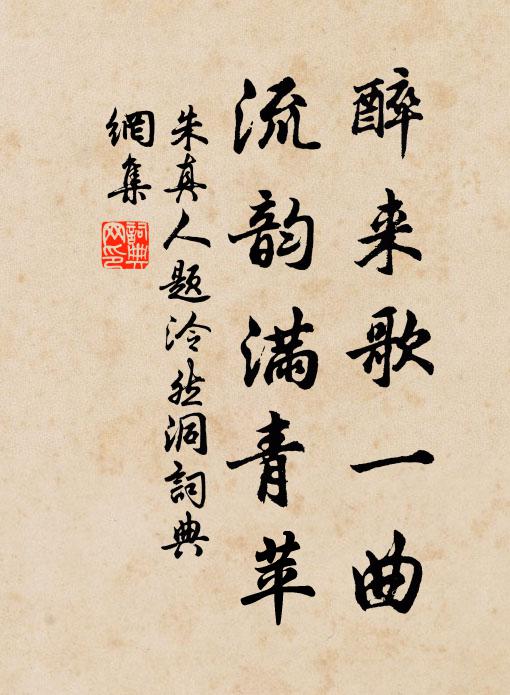 醉来歌一曲
流韵满青苹
朱真人题泠然洞詞典
網集
詞典網印